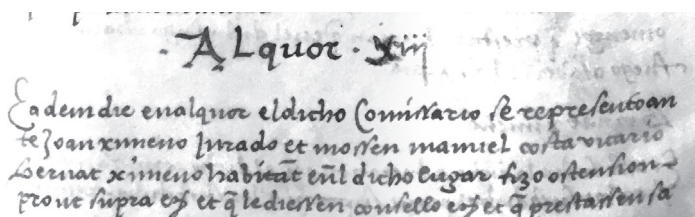 · ALquor · xiij
Eademdie enalquor eldicho Comissario se representoan
te Joan ximeno Jurado et mossen manuel costa vicario
bernat ximeno habitāt eñl dicho lugar fizo ostension
prout supra et q̄ lediessen consello et q̄ prestassen sa